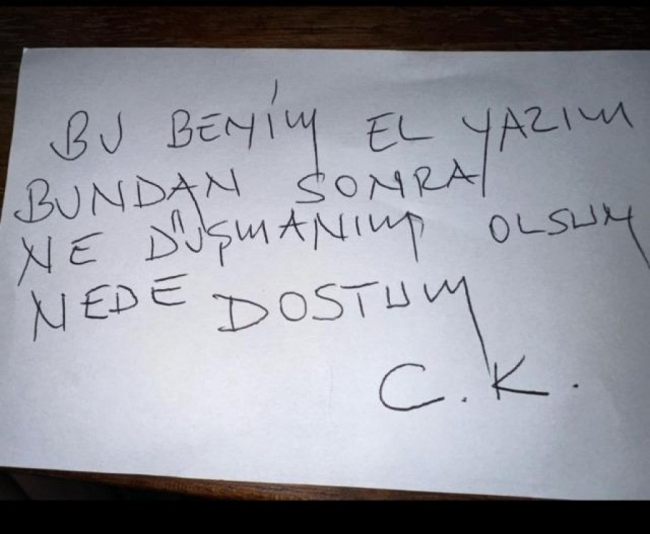 BU BENİM EL YAZIM
BUNDAN SONRA
NE DÜŞMANIM OLSUN
NEDE DOSTUM
C.K.